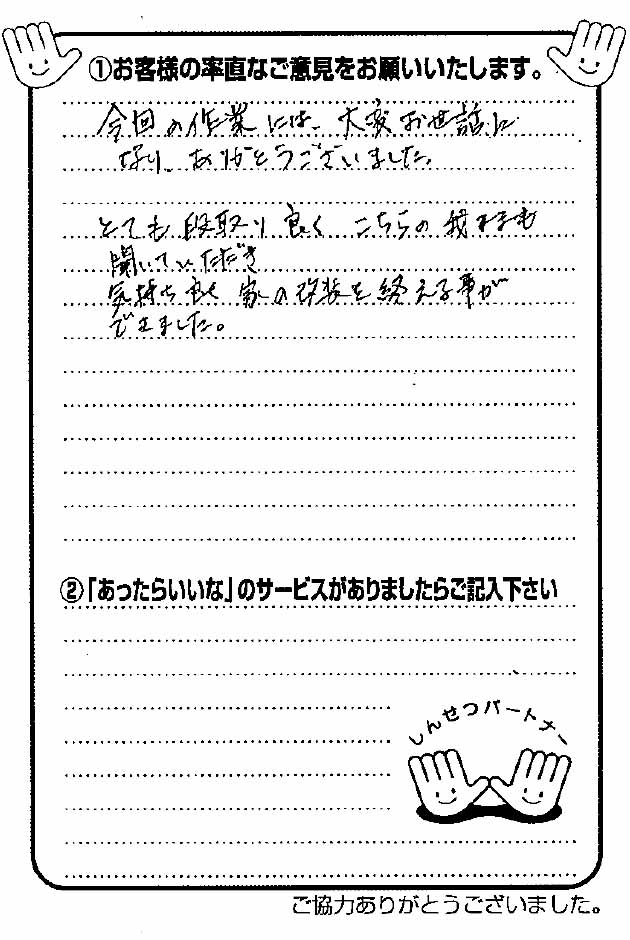 ①お客様の率直なご意見をお願いいたします。
今回の作業には、大変お世話に
なり、ありがとうございました。
とても段取り良く こちらの我ままも
聞いていただき
気持ち良く 家の改装を終える事が
できました。
②「あったらいいな」のサービスがありましたらご記入下さい
しんせつパートナー
ご協力ありがとうございました。